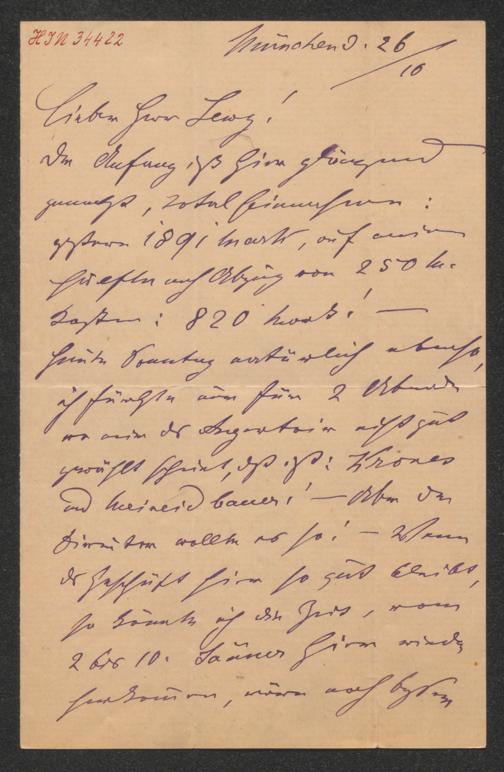 HIN 34422
München d. 26/10
Lieber Herr Lewy!
Der Anfang ist hier glänzend
gemacht, Total Einnahmen:
gestern 1891 Mark, auf meine
Hälfte nach Abzug von 250 M.
Kosten: 820 Mark! —
heute Sonntag natürlich ebenso,
ich fürchte nur für 2 Abende
wo mir das Repertoir nicht gut
gewählt scheint, das ist: Krones
und Meineidbauer! — Aber der
Direktor wollte es so! — Wenn
das Geschäft hier so gut bleibt,
so könnte ich die Zeit, vom
2 bis 10. Jänner hier wieder
herkommen, wäre noch besser